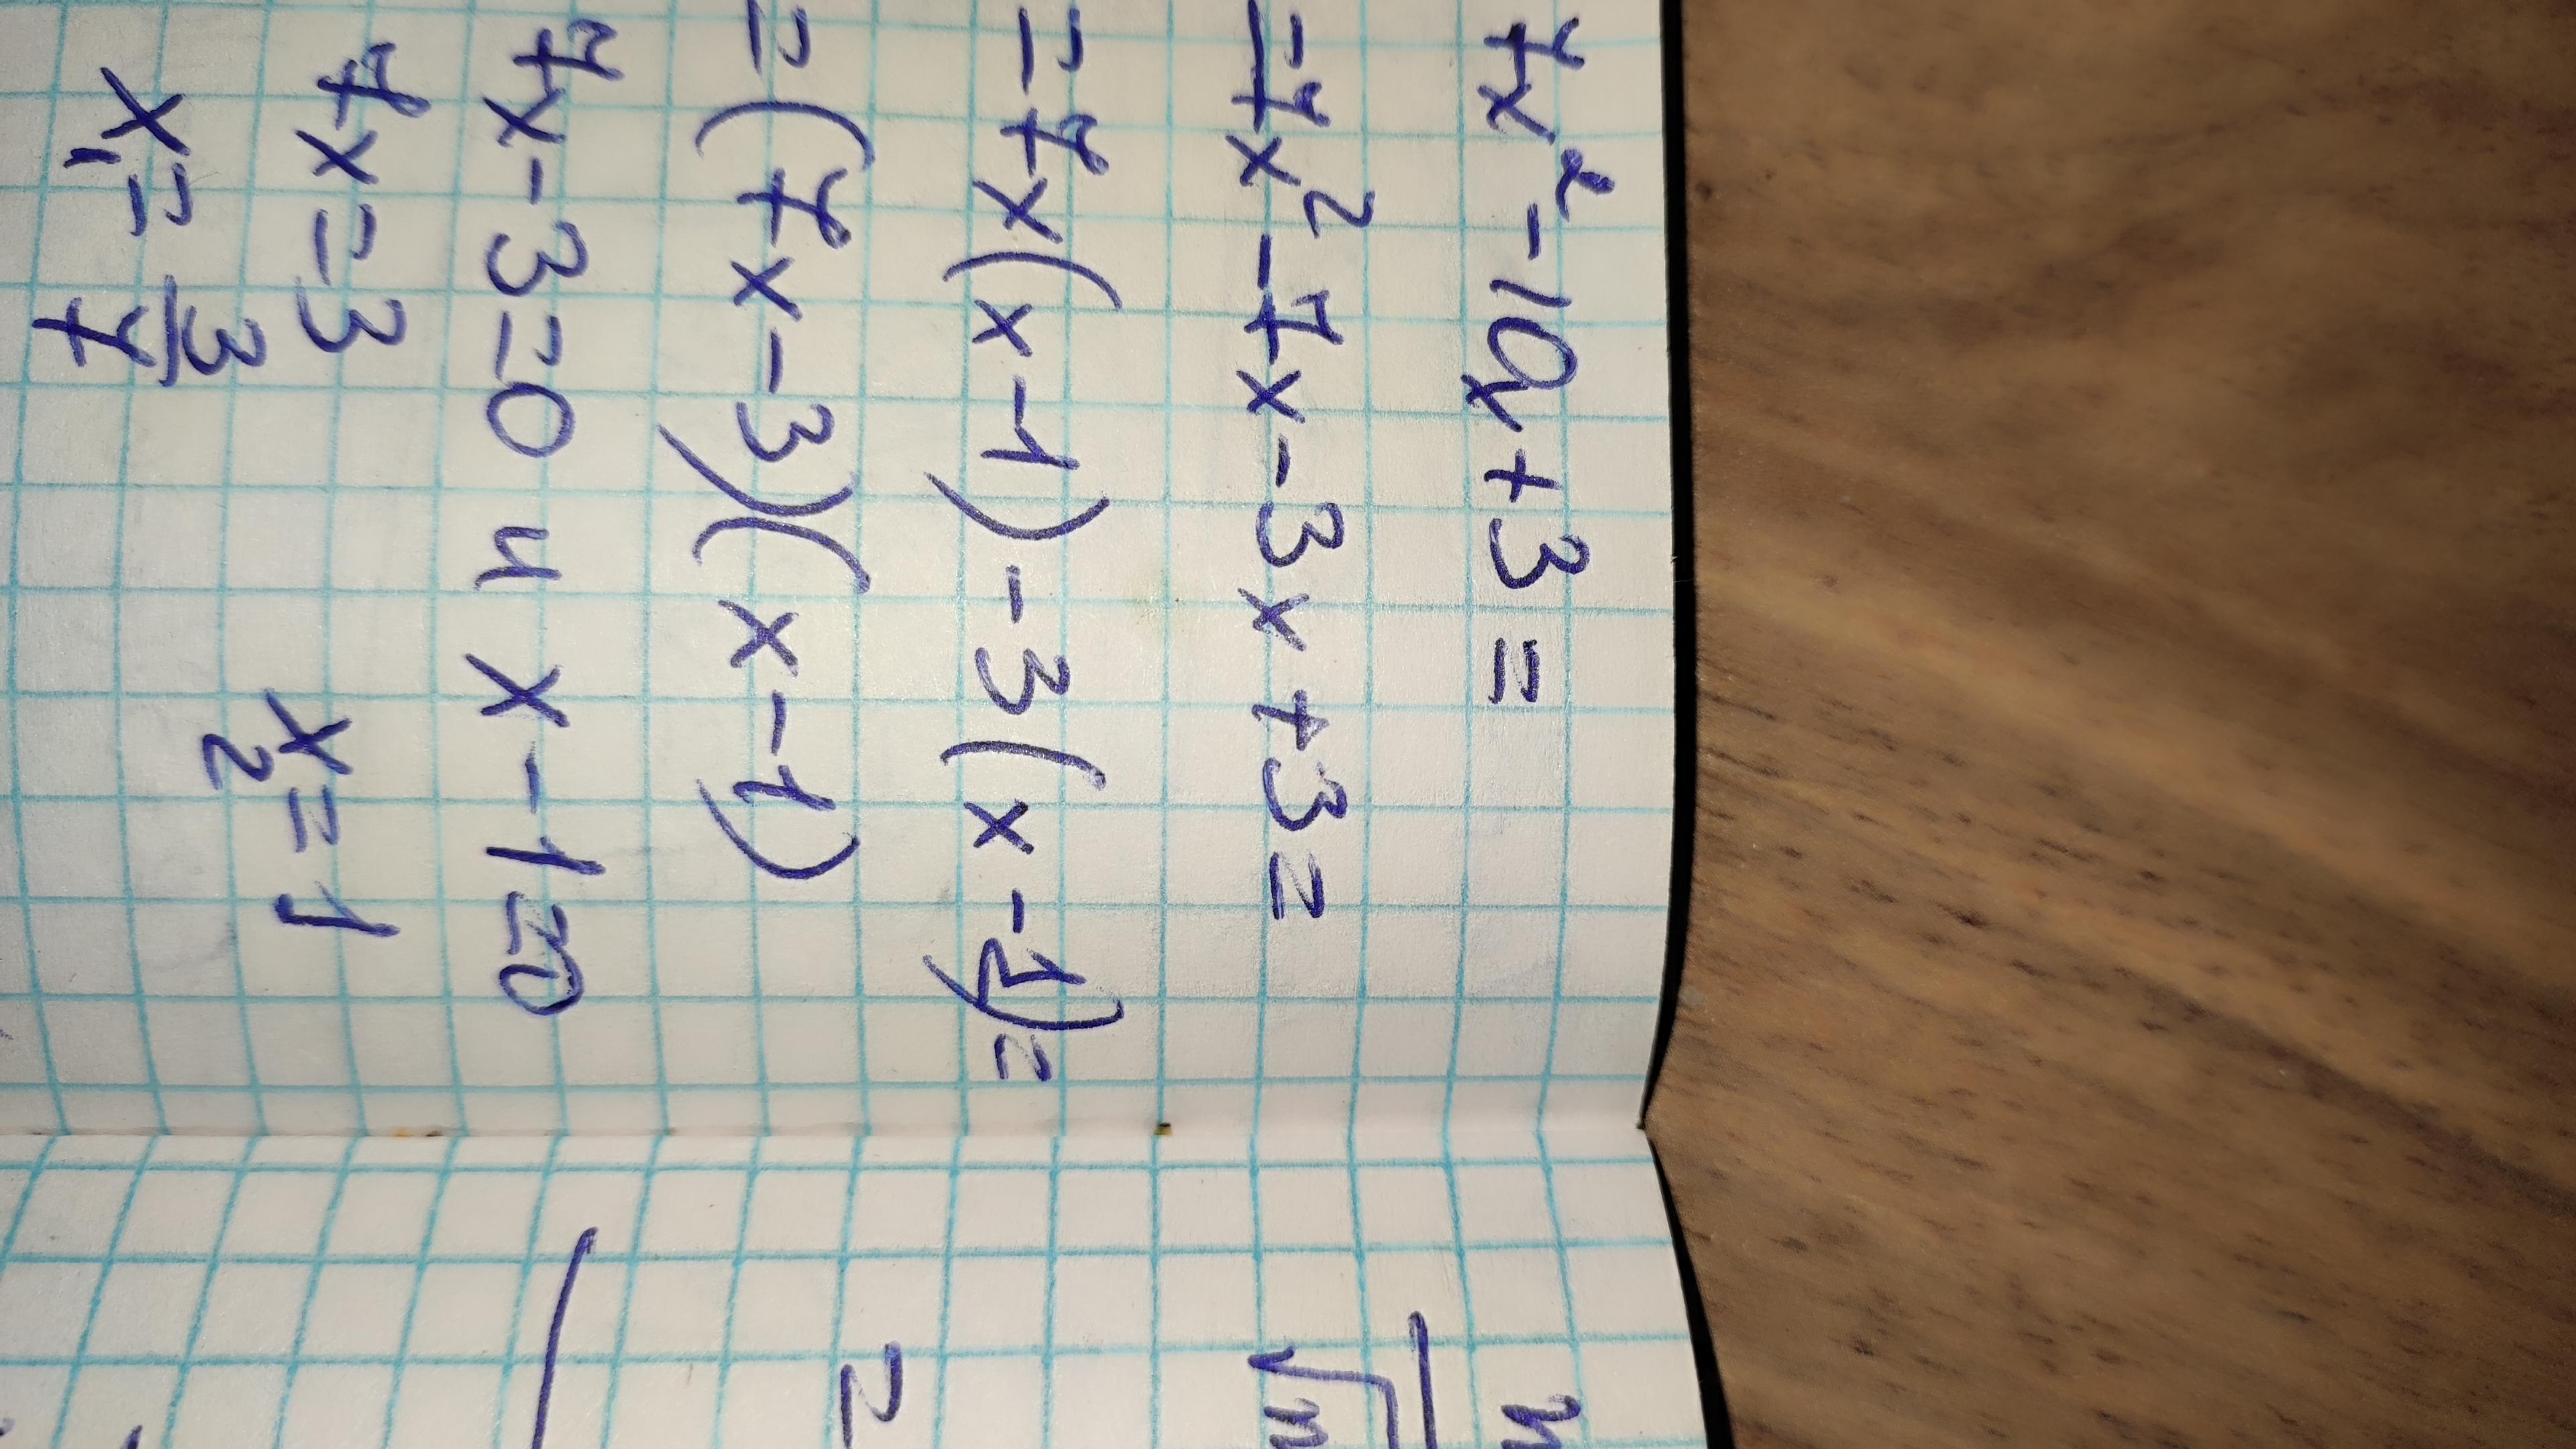 7x² - 10x + 3 =
= 7x² - 7x - 3x + 3 =
= 7x(x - 1) - 3(x - 1) =
= (7x - 3)(x - 1)
7x - 3 = 0 и x - 1 = 0
7x = 3
x₂ = 1
x₁ = 3/7